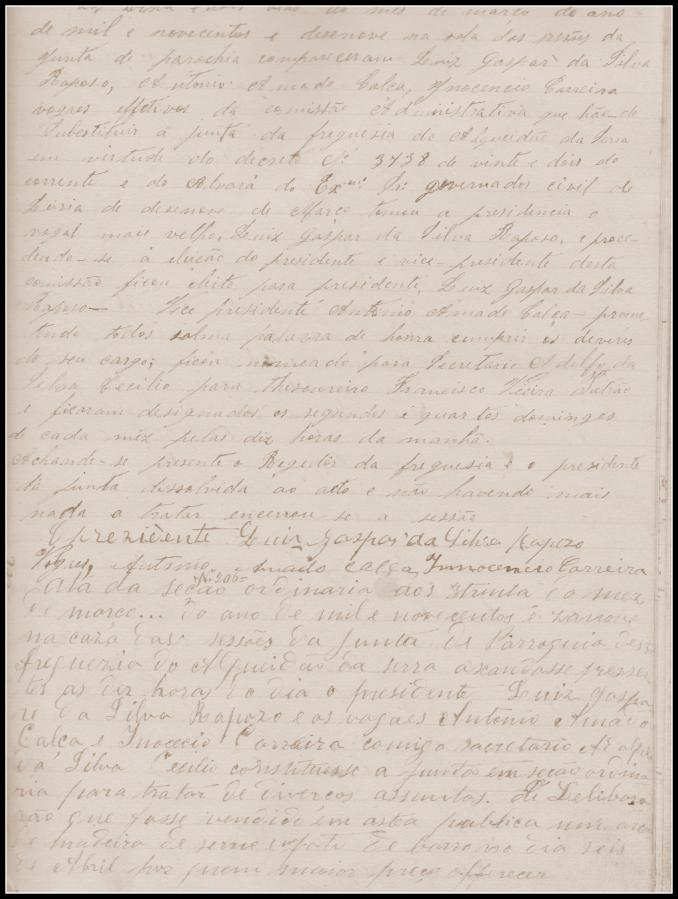 mes de março do ano
de mil e novecentos e desenove na sala das sesões da
Junta de parochia compareceram Luiz Gaspar da Silva
Raposo, Antonio Amado Calca, Ynocencio Carreira
vogaes efetivos da comissão Administrativa que hão-de
Substituir a junta da freguesia do Alqueidão da Serra
em virtude do decreto Nº 3738 de vinte e dois do
corrente e do Alvará do Exmº Sr. governador civil de
Leiria de desenove de Março tomou a presidencia o
vogal mais velho, Luiz Gaspar da Silva Raposo, e proce-
dendo-se á eleição do presidente e vice-presidente desta
comissão ficou eleito para presidente, Luiz Gaspar da Silva
Raposo— Vice presidente Antonio Amado Calca— prome-
tendo todos palavra de honra cumprir os deveres
do seu cargo; ficou nomeado para Secretario Adolfo da
Silva Cecilio para thesoureiro Francisco Vieira
e ficaram designados os segundos e quartos domingos
de cada mez pelas dez horas da manhã.
Achando-se presente o Regedor da freguesia e o presidente
da junta dissolvida ao acto e não havendo mais
nada a tratar encerrou se a sessão
O prezidente Luiz Gaspar da Silva Rapozo
Antonio Calca Innocencio Carreira
Atá da seção Nº 206= ordinaria aos trinta do mez
de março... do ano de mil e novecentos e
na caza das sessões da Junta de Parroquia des
freguezia do Alqueidão da serra axandosse prezen
tes as dez horas do dia o presidente Luiz Gaspa
re da Silva Rapozo e os vogaes Antonio Amado
Calca e Inocecio Carreira comigo sacretario
da Silva Cecilio constituisse a junta em seção ordina
ria para tratar de divercos assuntos. Delibora
rão que fosse vendido em asta publica um
de madeira de barro no dia seis
de Abril por quem maior preço offerecer